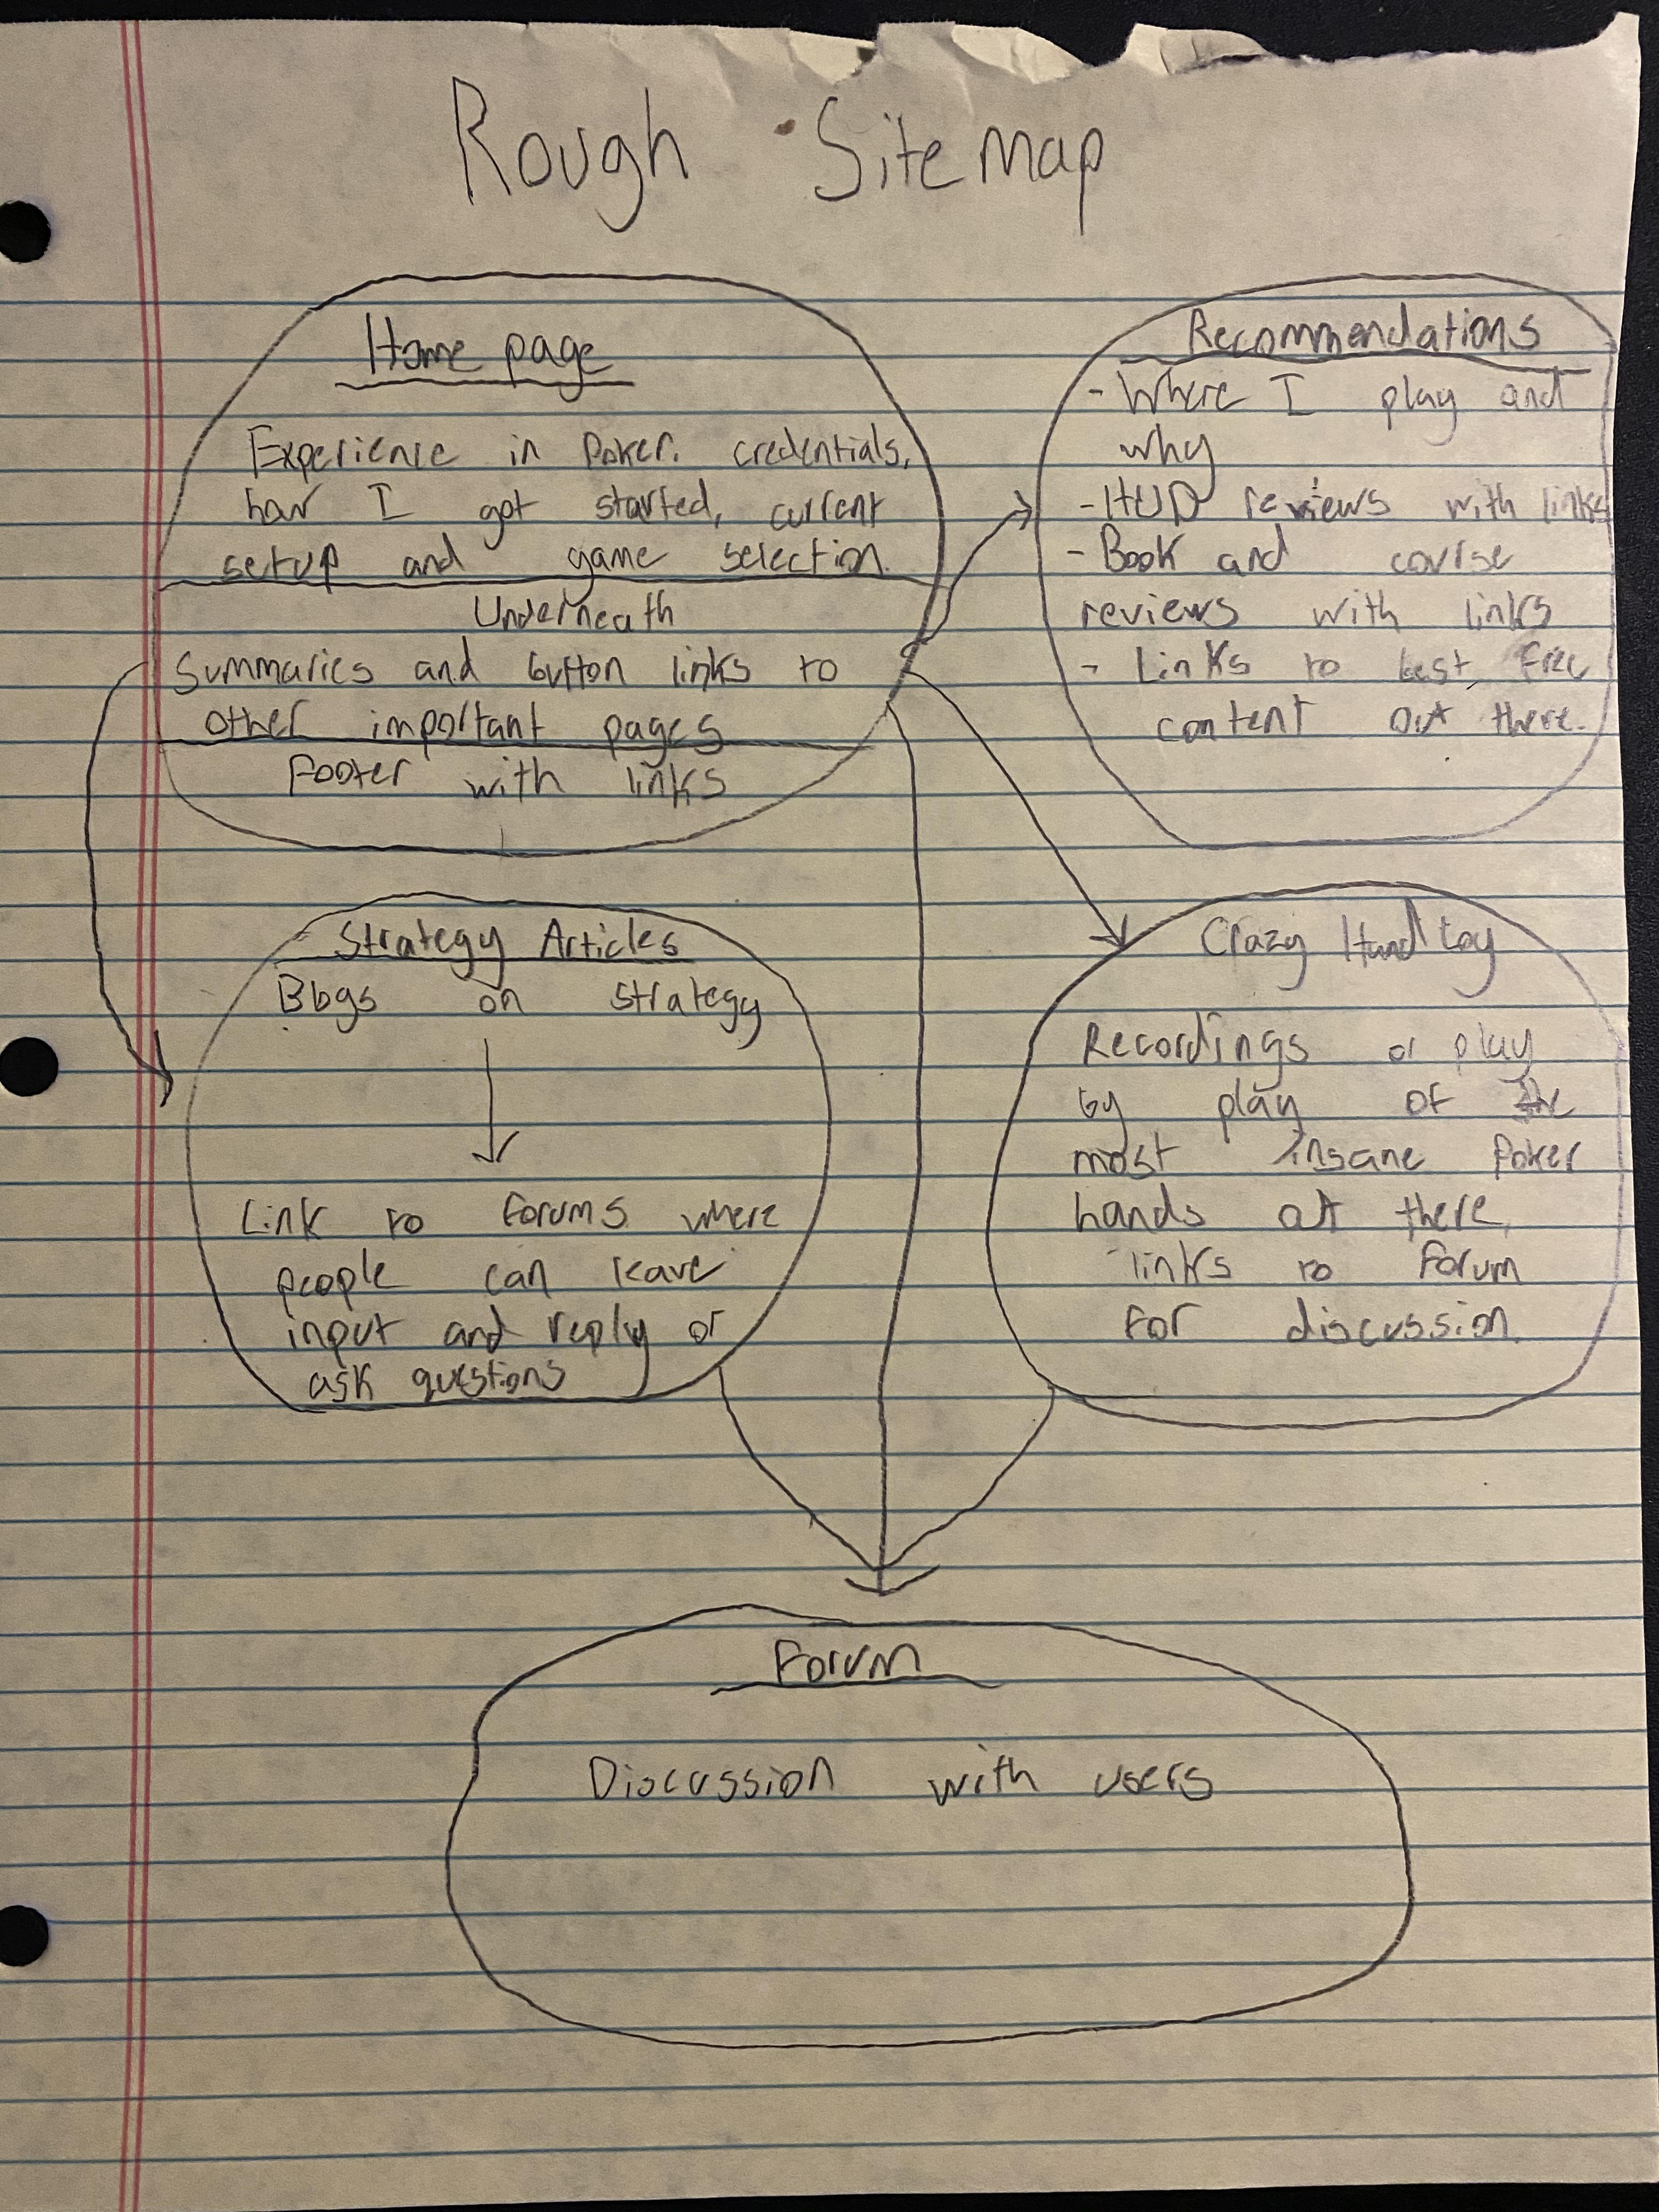 Rough Sitemap
Home page
Experience in Poker. credentials,
how I got started, current
setup and game selection.
Underneath
Summaries and button links to
other important pages
Footer with links
Recommendations
- Where I play and
why
- HUD reviews with links
- Book and course
reviews with links
- Links to best, free
content out there.
Strategy Articles
Blogs on strategy
Link to forums where
people can leave
input and reply or
ask questions
Crazy Hand Log
Recordings or play
by play of the
most insane Poker
hands out there,
links to forum
for discussion.
Forum
Discussion with users